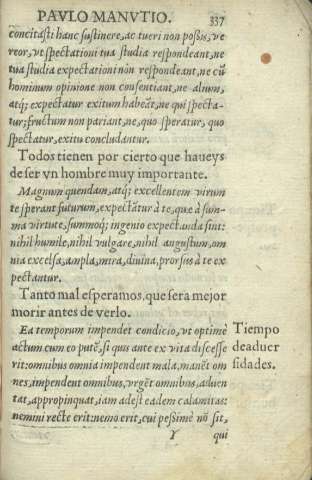 PAVLO MANVTIO. 337
concitasti hanc sustinere, ac tueri non possis, ve
reor, vt spectationi tua studia respondeant, ne
tua studia expectationi non respondeant, ne cũ
hominum opinione non consentiant, ne alium,
atq; expectatur exitum habeãt, ne qui specta-
tur; fructum non pariant, ne, quo speratur, quo
spectatur, exitu concludantur.
Todos tienen por cierto que haueys
de ser vn hombre muy importante.
Magnum quendam, atq; excellentem virum
te sperant futurum, expectãtur à te, quæ à sum-
ma virtute, summoq; ingenio expectanda sint:
nihil humile, nihil vulgare, nihil angustum, om
nia excelsa, ampla, mira, diuina, prorsus à te ex
pectantur.
Tanto mal esperamos, que sera mejor
morir antes de verlo.
Ea temporum impendet condicio, vt optimè
actum cum eo putẽ, si quis ante ex vita discesse
rit: omnibus omnia impendent mala, manẽt om
nes, impendent omnibus, vrgẽt omnibus, aduen
tat, appropinquat, iam adest eadem calamitas:
nemini recte erit: nemo erit, cui pessimè nõ sit,
Tiempo
de aduer
sidades.
Y qui